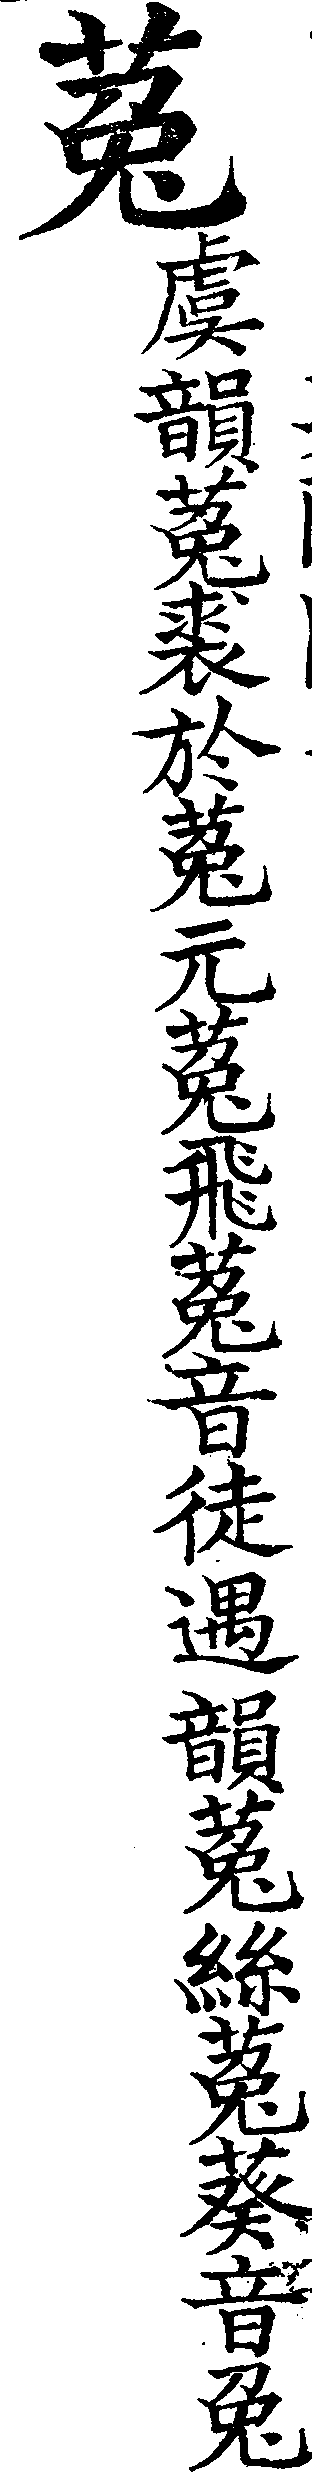 菟
虞韻菟裘於菟元菟飛菟音徒遇韻菟絲菟葵音兔